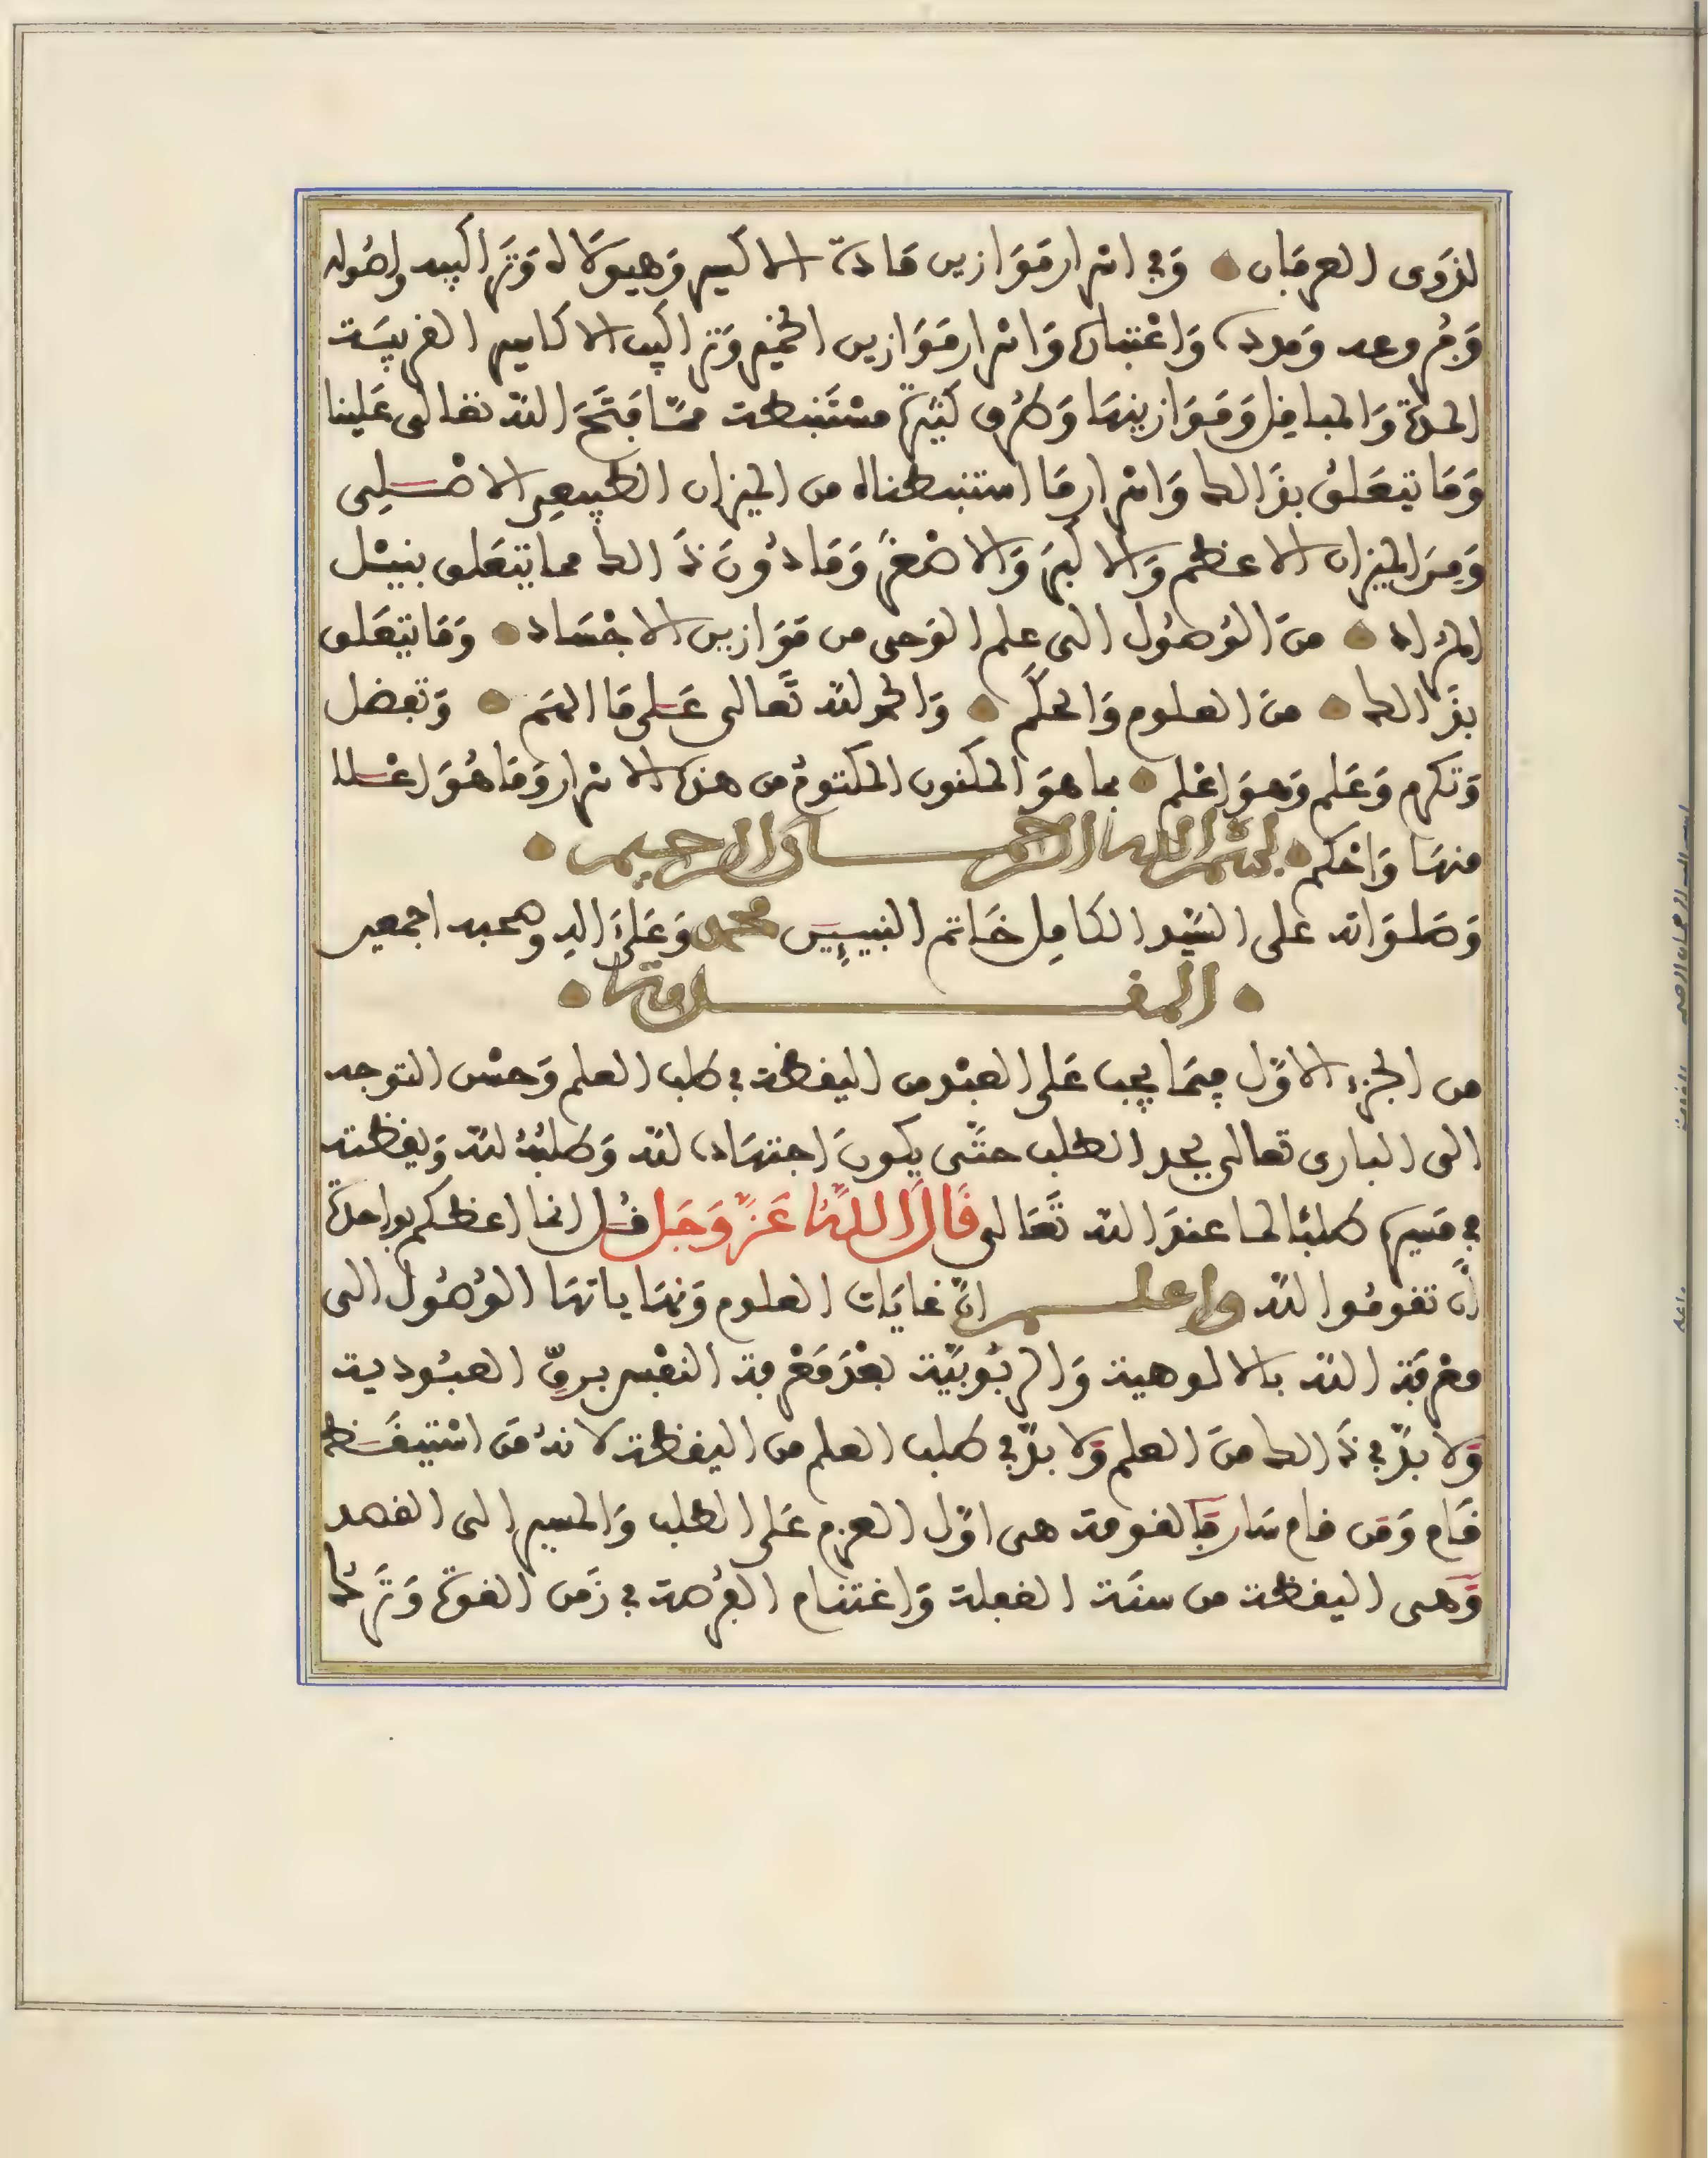 لذوى العرفان وفي اسرار موازين مادة الاكسير وهيولاه وتراكيبه واصوله
وفروعه ومدده واعتباره واسرار موازين الخمير وتراكيب الاكاسير القريبة
المدة والمبافل وموازينها وطرق كثيرة مستنبطة مما فتح الله تعالى علينا
وما يتعلق بذالك واسرار ما استنبطناه من الميزان الطبيعى الاصلى
ومن الميزان الاعظم والاكبر والاصغر وما دون ذالك مما يتعلق بنيل
المراد من الوصول الى علم الوحى من موازين الاجساد وما يتعلق
بذالك من العلوم والحكم والحمد لله تعالى على ما الهم وتفضل
وتكرم وعلم وهو اعلم بما هو المكنون المكتوم من هذه الاسرار وما هو اعلا
منها واحكم بسم الله الرحمان الرحيم
وصلواته على السيد الكامل خاتم النبيين محمد وعلى اله وصحبه اجمعين
المقدمة
من الجزء الاول فيما يجب على العبد من اليقظة في طلب العلم وحسن التوجه
الى البارى تعالى بجد الطلب حتى يكون اجتهاده لله وطلبه لله ويقظته
في مسيره طلبا لما عند الله تعالى قال الله عز وجل قل انما اعظكم بواحدة
ان تقوموا لله واعلم ان غايات العلوم ونهاياتها الوصول الى
معرفة الله بالالوهية والربوبية بعد معرفة النفس برق العبودية
ولا بد في ذالك من العلم ولا بد في طلب العلم من اليقظة لانه من استيقظ
قام ومن قام سار فالقومة هى اول العزم على الطلب والمسير الى القصد
وهى اليقظة من سنة الغفلة واغتنام الفرصة في زمن القوة وترك